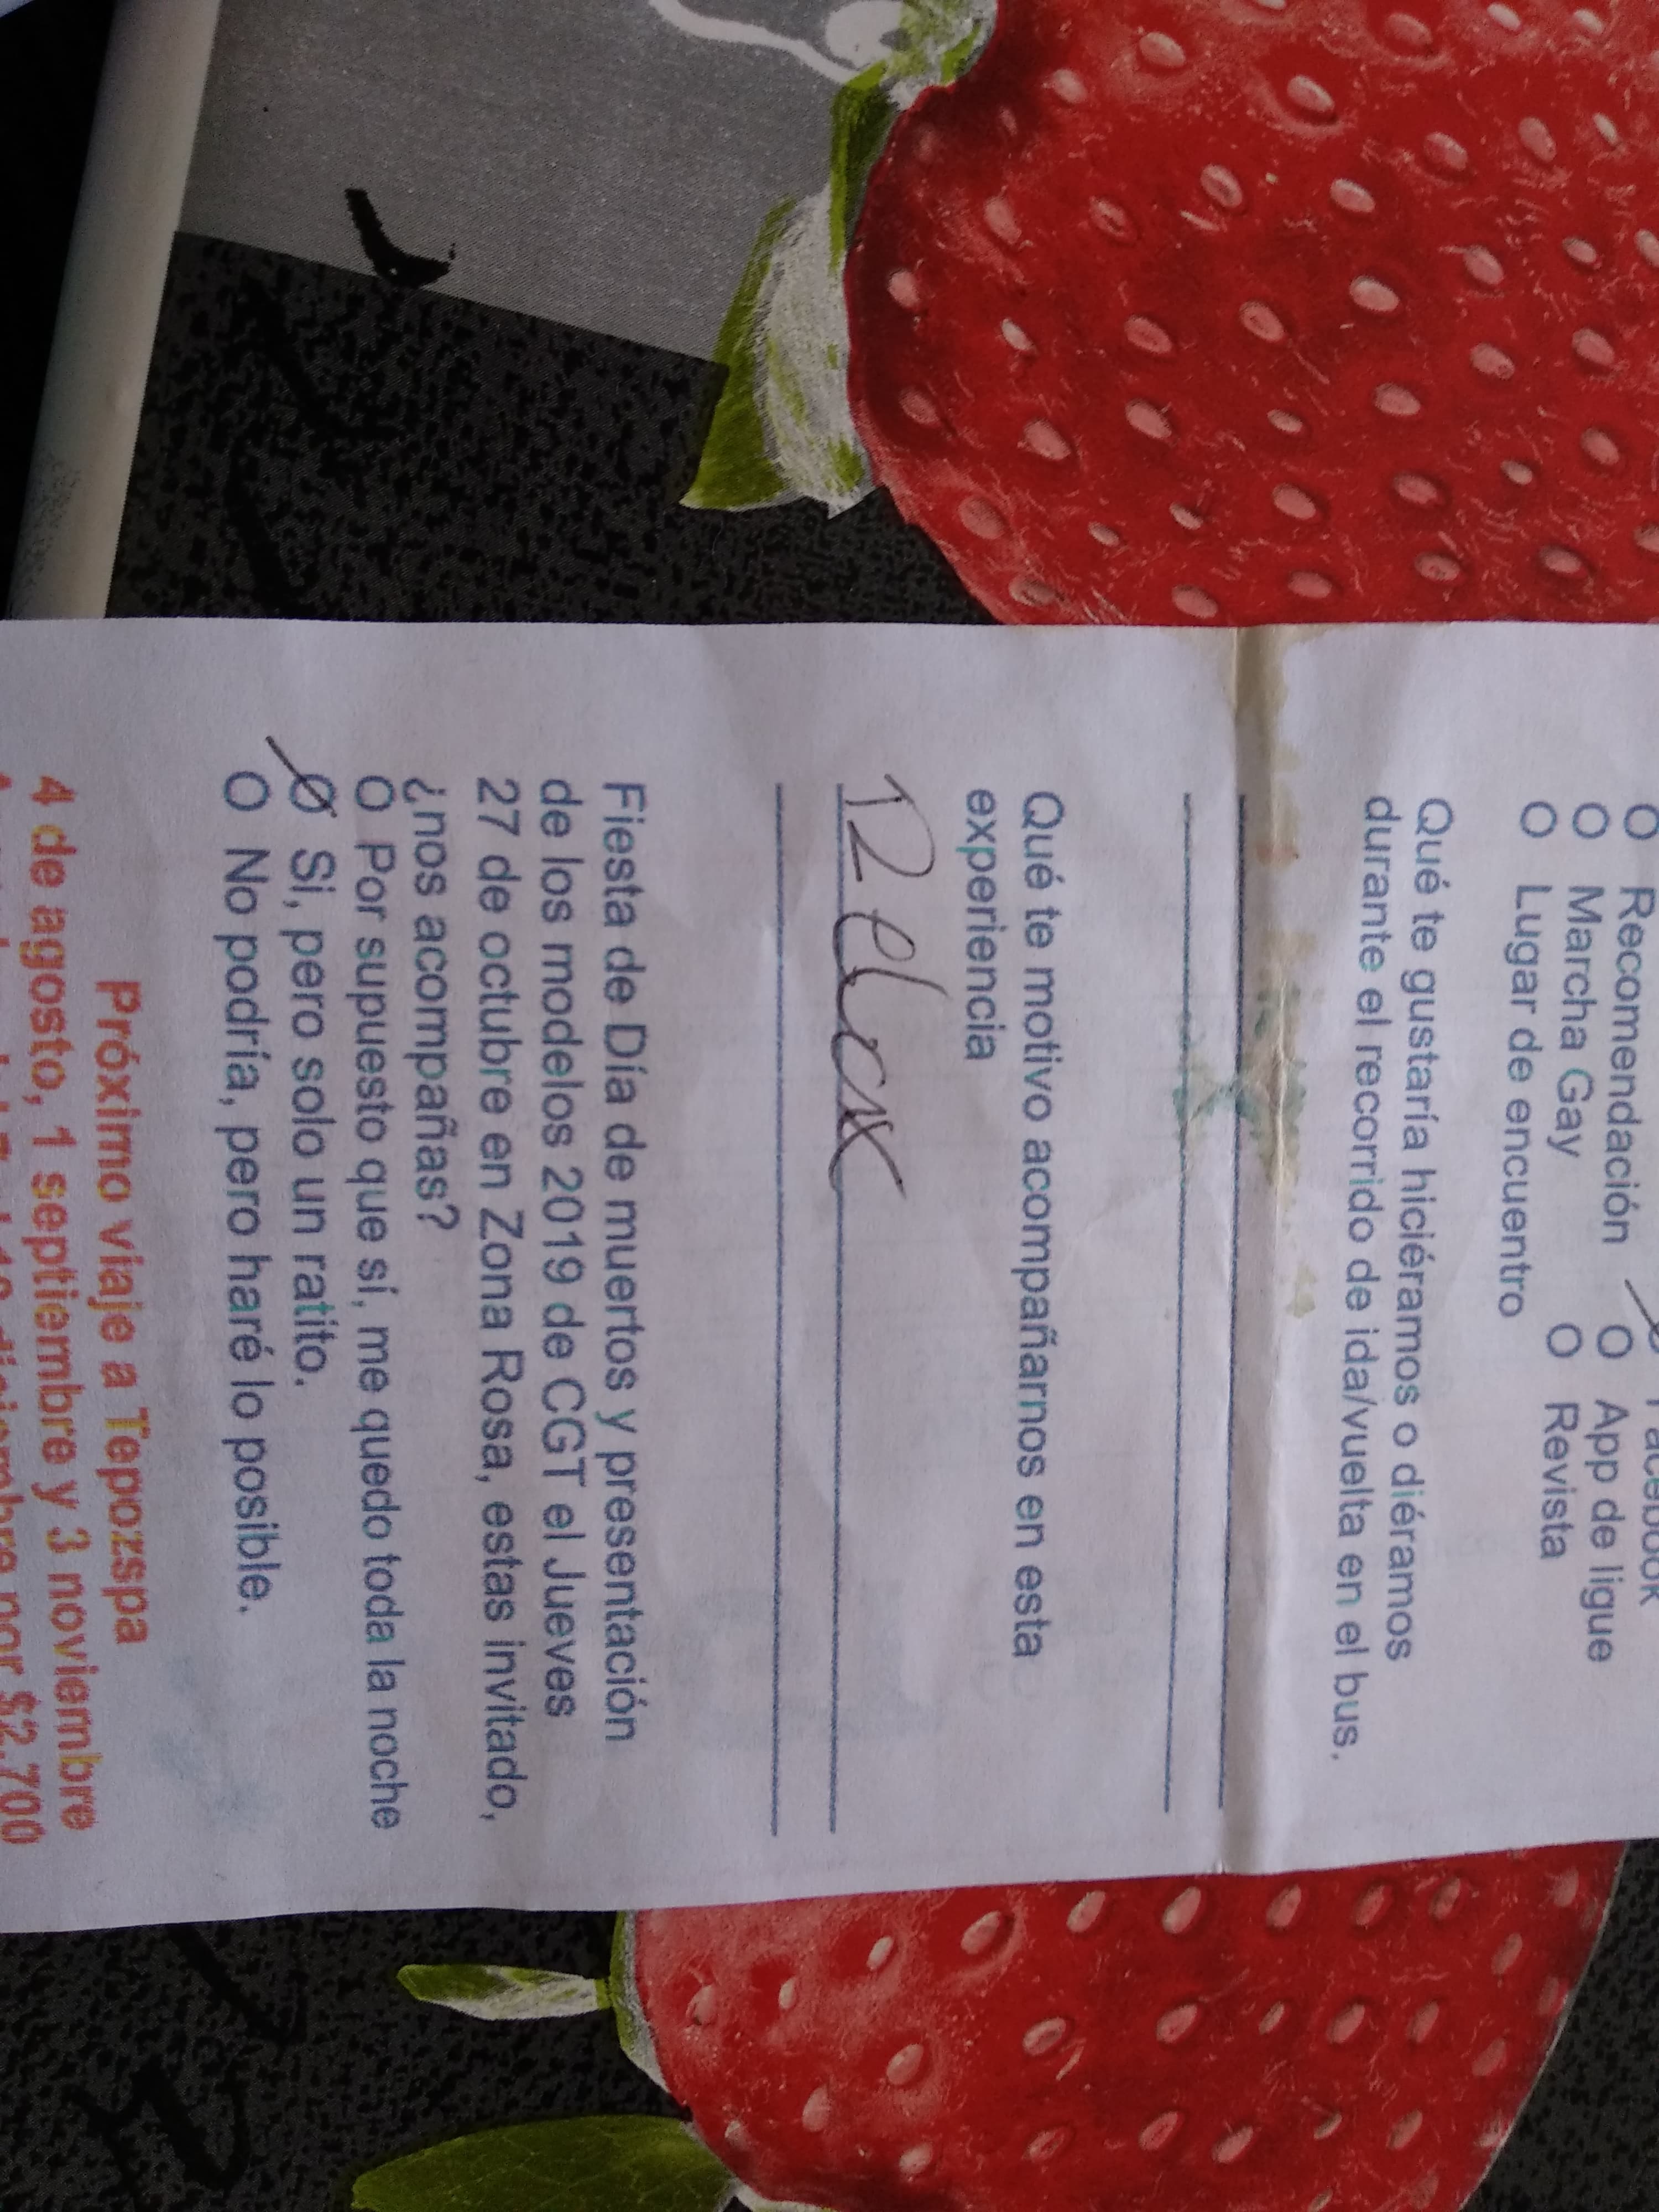 O Recomendación
O Marcha Gay
O Lugar de encuentro
Facebook
O App de ligue
O Revista
Qué te gustaría hiciéramos o diéramos
durante el recorrido de ida/vuelta en el bus.
Qué te motivo acompañarnos en esta
experiencia
Fiesta de Día de muertos y presentación
de los modelos 2019 de CGT el Jueves
27 de octubre en Zona Rosa, estas invitado,
¿nos acompañas?
O Por supuesto que sí, me quedo toda la noche
O Si, pero solo un ratito.
O No podría, pero haré lo posible.
Próximo viaje a Tepozspa
4 de agosto, 1 septiembre y 3 noviembre
diciembre por $2,700